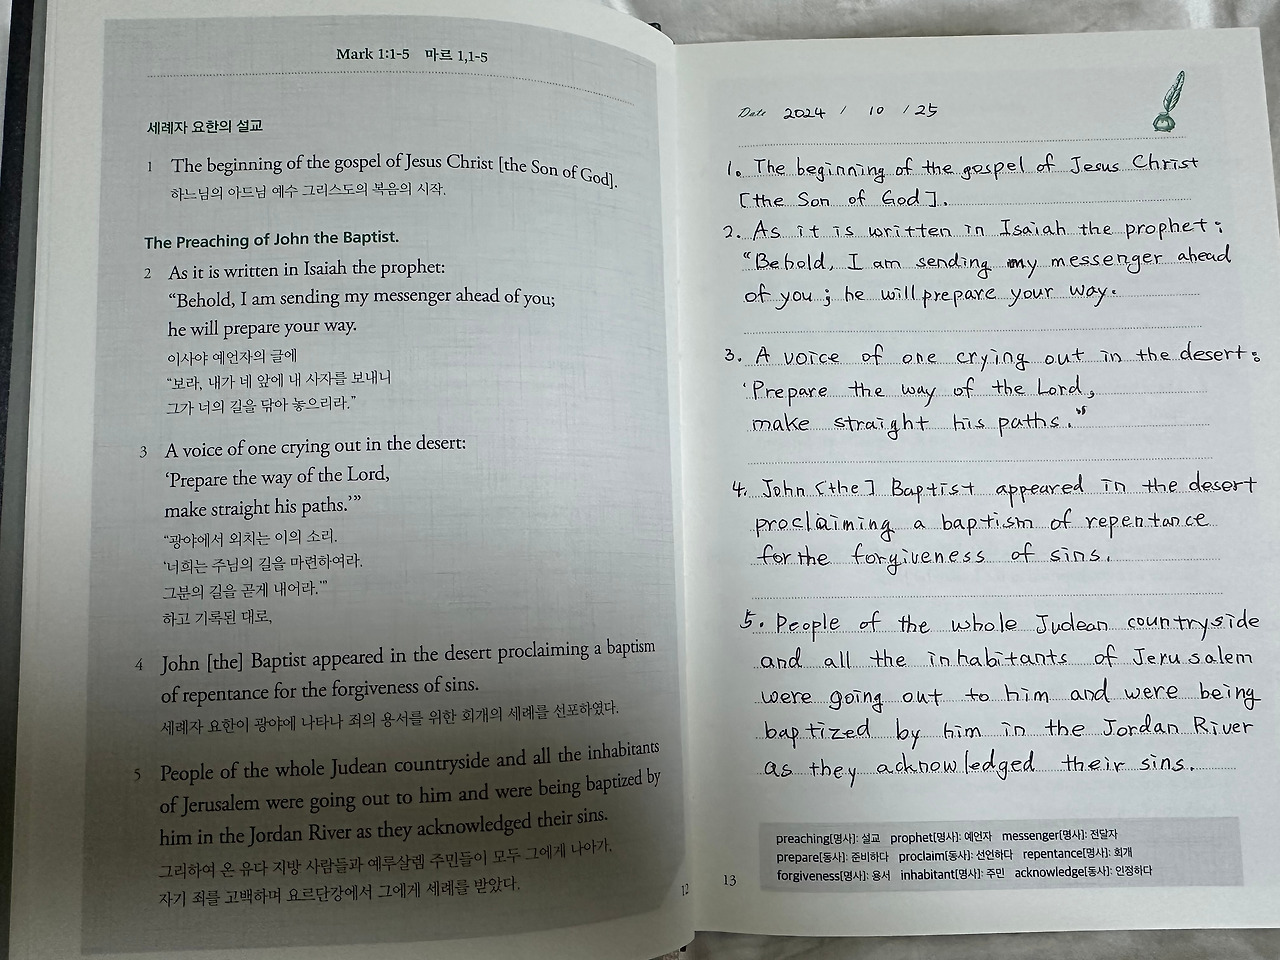 Mark 1:1-5 마르 1,1-5
세례자 요한의 설교
1 The beginning of the gospel of Jesus Christ [the Son of God].
하느님의 아드님 예수 그리스도의 복음의 시작.
The Preaching of John the Baptist.
2 As it is written in Isaiah the prophet:
“Behold, I am sending my messenger ahead of you;
he will prepare your way.
이사야 예언자의 글에
“보라, 내가 네 앞에 내 사자를 보내니
그가 너의 길을 닦아 놓으리라.”
3 A voice of one crying out in the desert:
‘Prepare the way of the Lord,
make straight his paths.’”
“광야에서 외치는 이의 소리.
‘너희는 주님의 길을 마련하여라.
그분의 길을 곧게 내어라.’”
하고 기록된 대로,
4 John [the] Baptist appeared in the desert proclaiming a baptism
of repentance for the forgiveness of sins.
세례자 요한이 광야에 나타나 죄의 용서를 위한 회개의 세례를 선포하였다.
5 People of the whole Judean countryside and all the inhabitants
of Jerusalem were going out to him and were being baptized by
him in the Jordan River as they acknowledged their sins.
그리하여 온 유다 지방 사람들과 예루살렘 주민들이 모두 그에게 나아가,
자기 죄를 고백하며 요르단강에서 그에게 세례를 받았다.
12
Date 2024 / 10 / 25
1. The beginning of the gospel of Jesus Christ
[the Son of God].
2. As it is written in Isaiah the prophet;
“Behold, I am sending my messenger ahead
of you; he will prepare your way.
3. A voice of one crying out in the desert:
‘Prepare the way of the Lord,
make straight his paths.”
4. John [the] Baptist appeared in the desert
proclaiming a baptism of repentance
for the forgiveness of sins.
5. People of the whole Judean countryside
and all the inhabitants of Jerusalem
were going out to him and were being
baptized by him in the Jordan River
as they acknowledged their sins.
preaching[명사]: 설교 prophet[명사]: 예언자 messenger[명사]: 전달자
prepare[동사]: 준비하다 proclaim[동사]: 선언하다 repentance[명사]: 회개
forgiveness[명사]: 용서 inhabitant[명사]: 주민 acknowledge[동사]: 인정하다
13